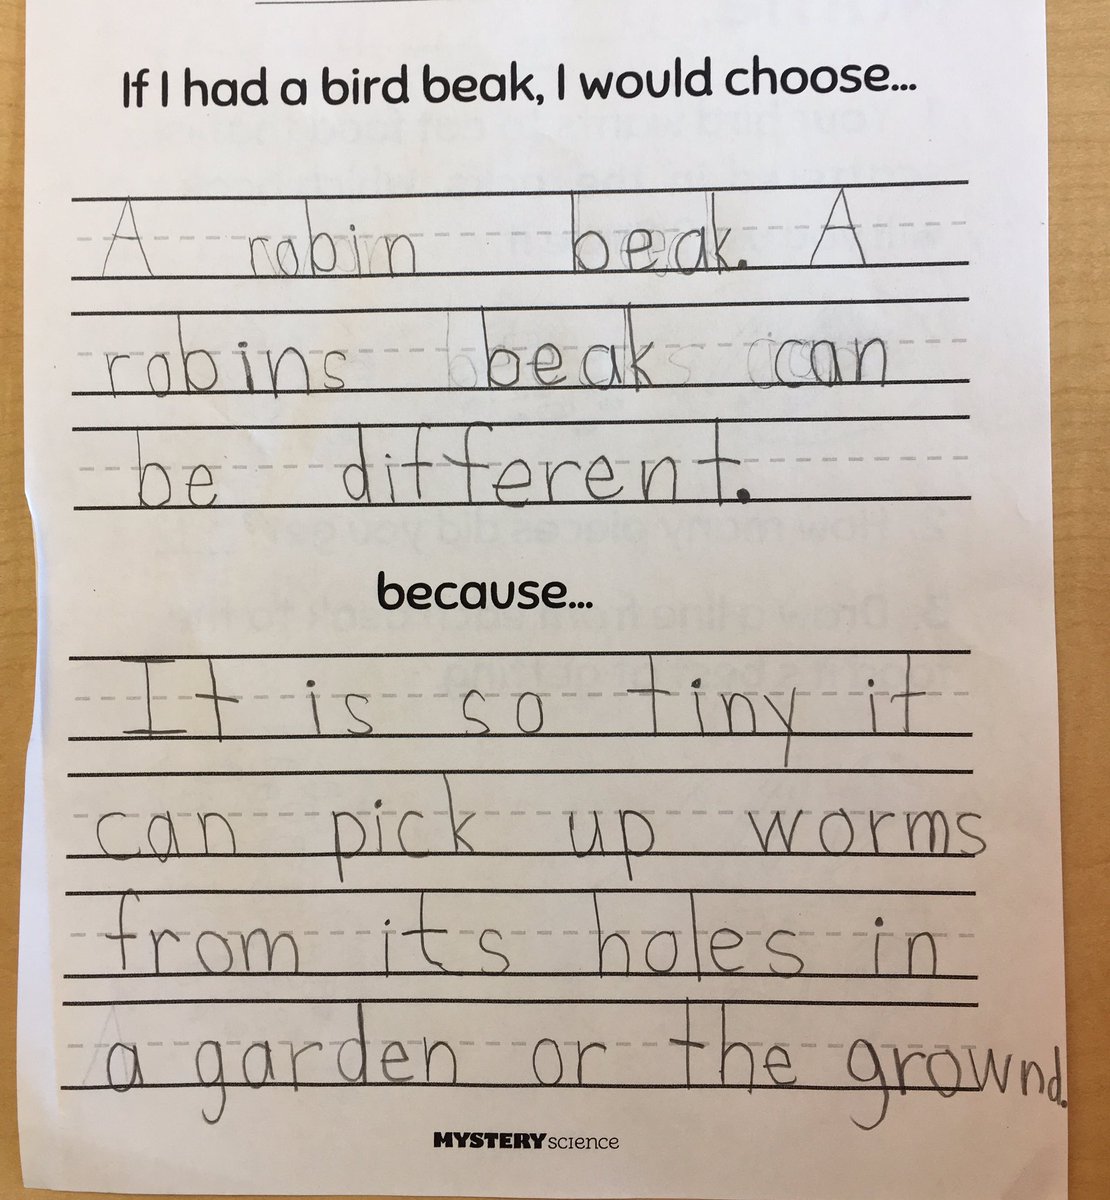 If I had a bird beak, I would choose...
A robin beak. A
robins beak can
be different.
because...
It is so tiny it
can pick up worms
from its holes in
a garden or the grownd.
MYSTERY science